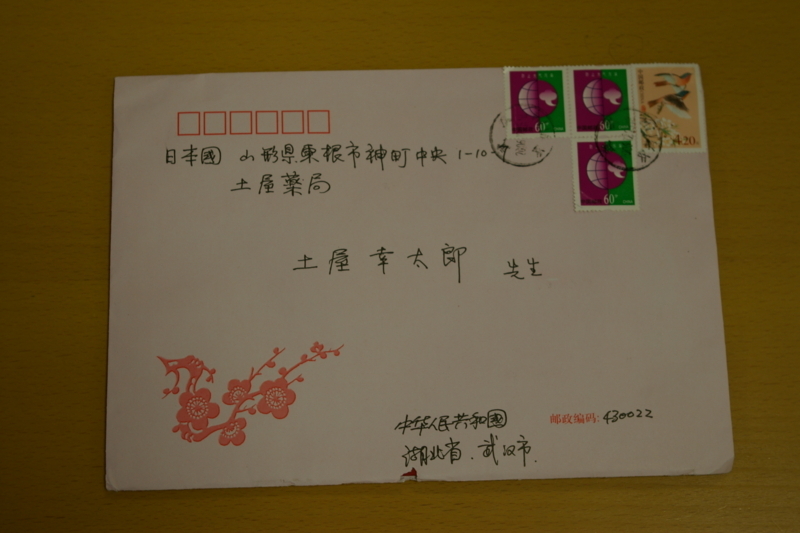 60
60
4.20
60
日本國 山形県東根市神町中央 1-10-7
土屋薬局
土屋幸太郎 先生
中华人民共和國
邮政编码: 430022
湖北省.武汉市.